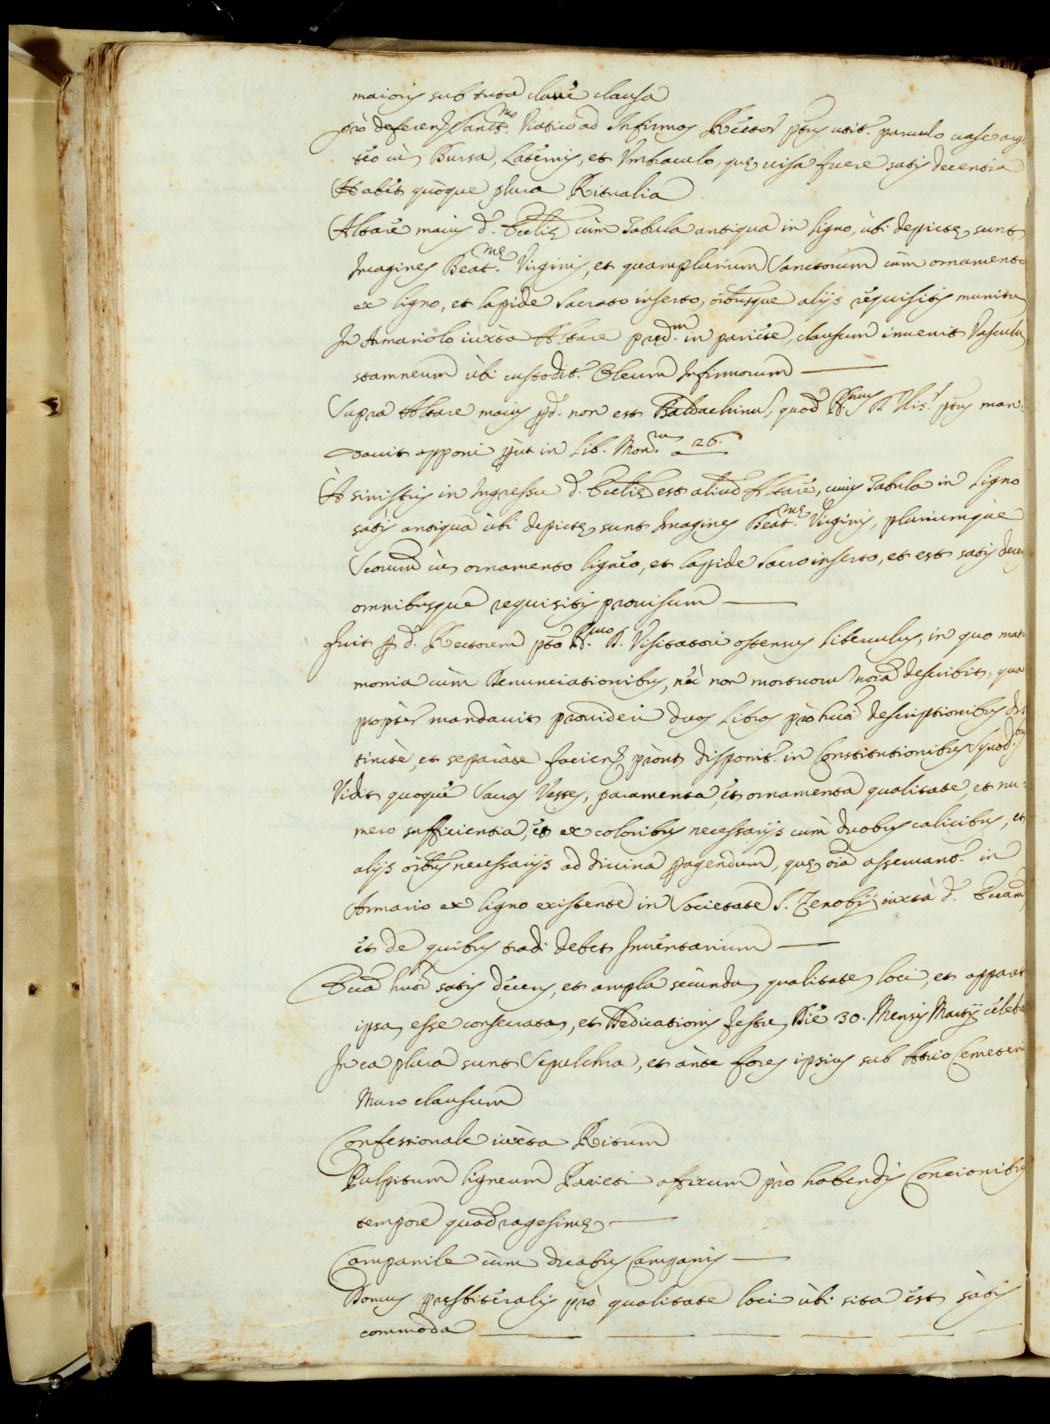 maioris sub tuta clave clausa
pro deferen. Sanct.mo Viatico ad Infirmos Rector ptus utit. parvulo vase arge
teo cù Bursa, Laternis, et Umbraculo, quę visa fuere satis decentia
Habet quòque plura Ritualia
Altarè maius d. Ecclię cùm Tabula antiqua in ligno, ùbi depictę sunt
Imagines Beat.mę Virginis, et quamplurium Sanctorum cùm ornamento
ex ligno, et lapide Sacrato inserto, oìbusque alijs requisitis munitu
In Armariolo iuxta Altare pred.m in pariete, clausum invenit Vasculu
stamneum ùbi custodit. Oleum Infirmorum —
Supra Altare maius pd. non est Baldachinu, quod R.mus D. Vis.r ptus man-
davit apponi pùt in Lib. Mon.m a 26.
A sinistris in Ingressu d. Ecclię est aliud Altarè, cuius Tabula in Ligno
satis antiqua ùbi depictę sunt Imagines Beat.mę Virginis, pluriumque
Sctorum cù ornamento lignèo, et lapide Sacro inserto, et est satis decen
omnibusque requisitis provisum —
Fuit p d. Rectorem pto R.mo D. Visitatori ostensus libellulus, in quo matr
monia cùm Denunciationibus, nèc non mortuoru noia describit, qua
propter mandavit provideri duos Libros pro huiusmodi descriptionibus dis
tinctè, et separatè facien. pròut disponit. in Constitutionibus Synod.bus
Vidit quoquè Sacras Vestes, paramenta, et ornamenta qualitate, et nu-
mero sufficientia, èt ex coloribus necessarijs cùm duobus calicibus, et
alijs oìbus necessarijs ad divina pagendum, quę oìa asservant. in
Armario ex ligno existente in Societate S. Zenobij iuxtà d. Eccam
èt de quibus tradi debet Inventarium —
Ecca huiusmodi satis decens, et ampla secundu qualitate loci, et apparet
ipsa esse consecrata, et Dedicationis Festu Diè 30. Mensis Martij celebr
In ea plura sunt Sepulchra, et ànte fores ipsius sub Atrio Cemeteri
Muro clausum
Confessionale iuxta Ritum
Pulpitum ligneum Parieti affixum prò habendis Concionibus
tempore quadragesimę —
Campanile cùm duabus Campanis —
Domus presbiteralis prò qualitate loci ùbi sita èst satis
commoda —